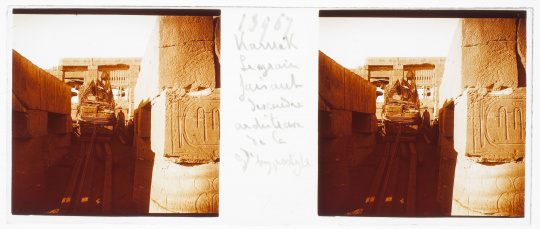 13967
Karnak
Legrain
faisant
descendre
architrave
de la
Slle hypostyle